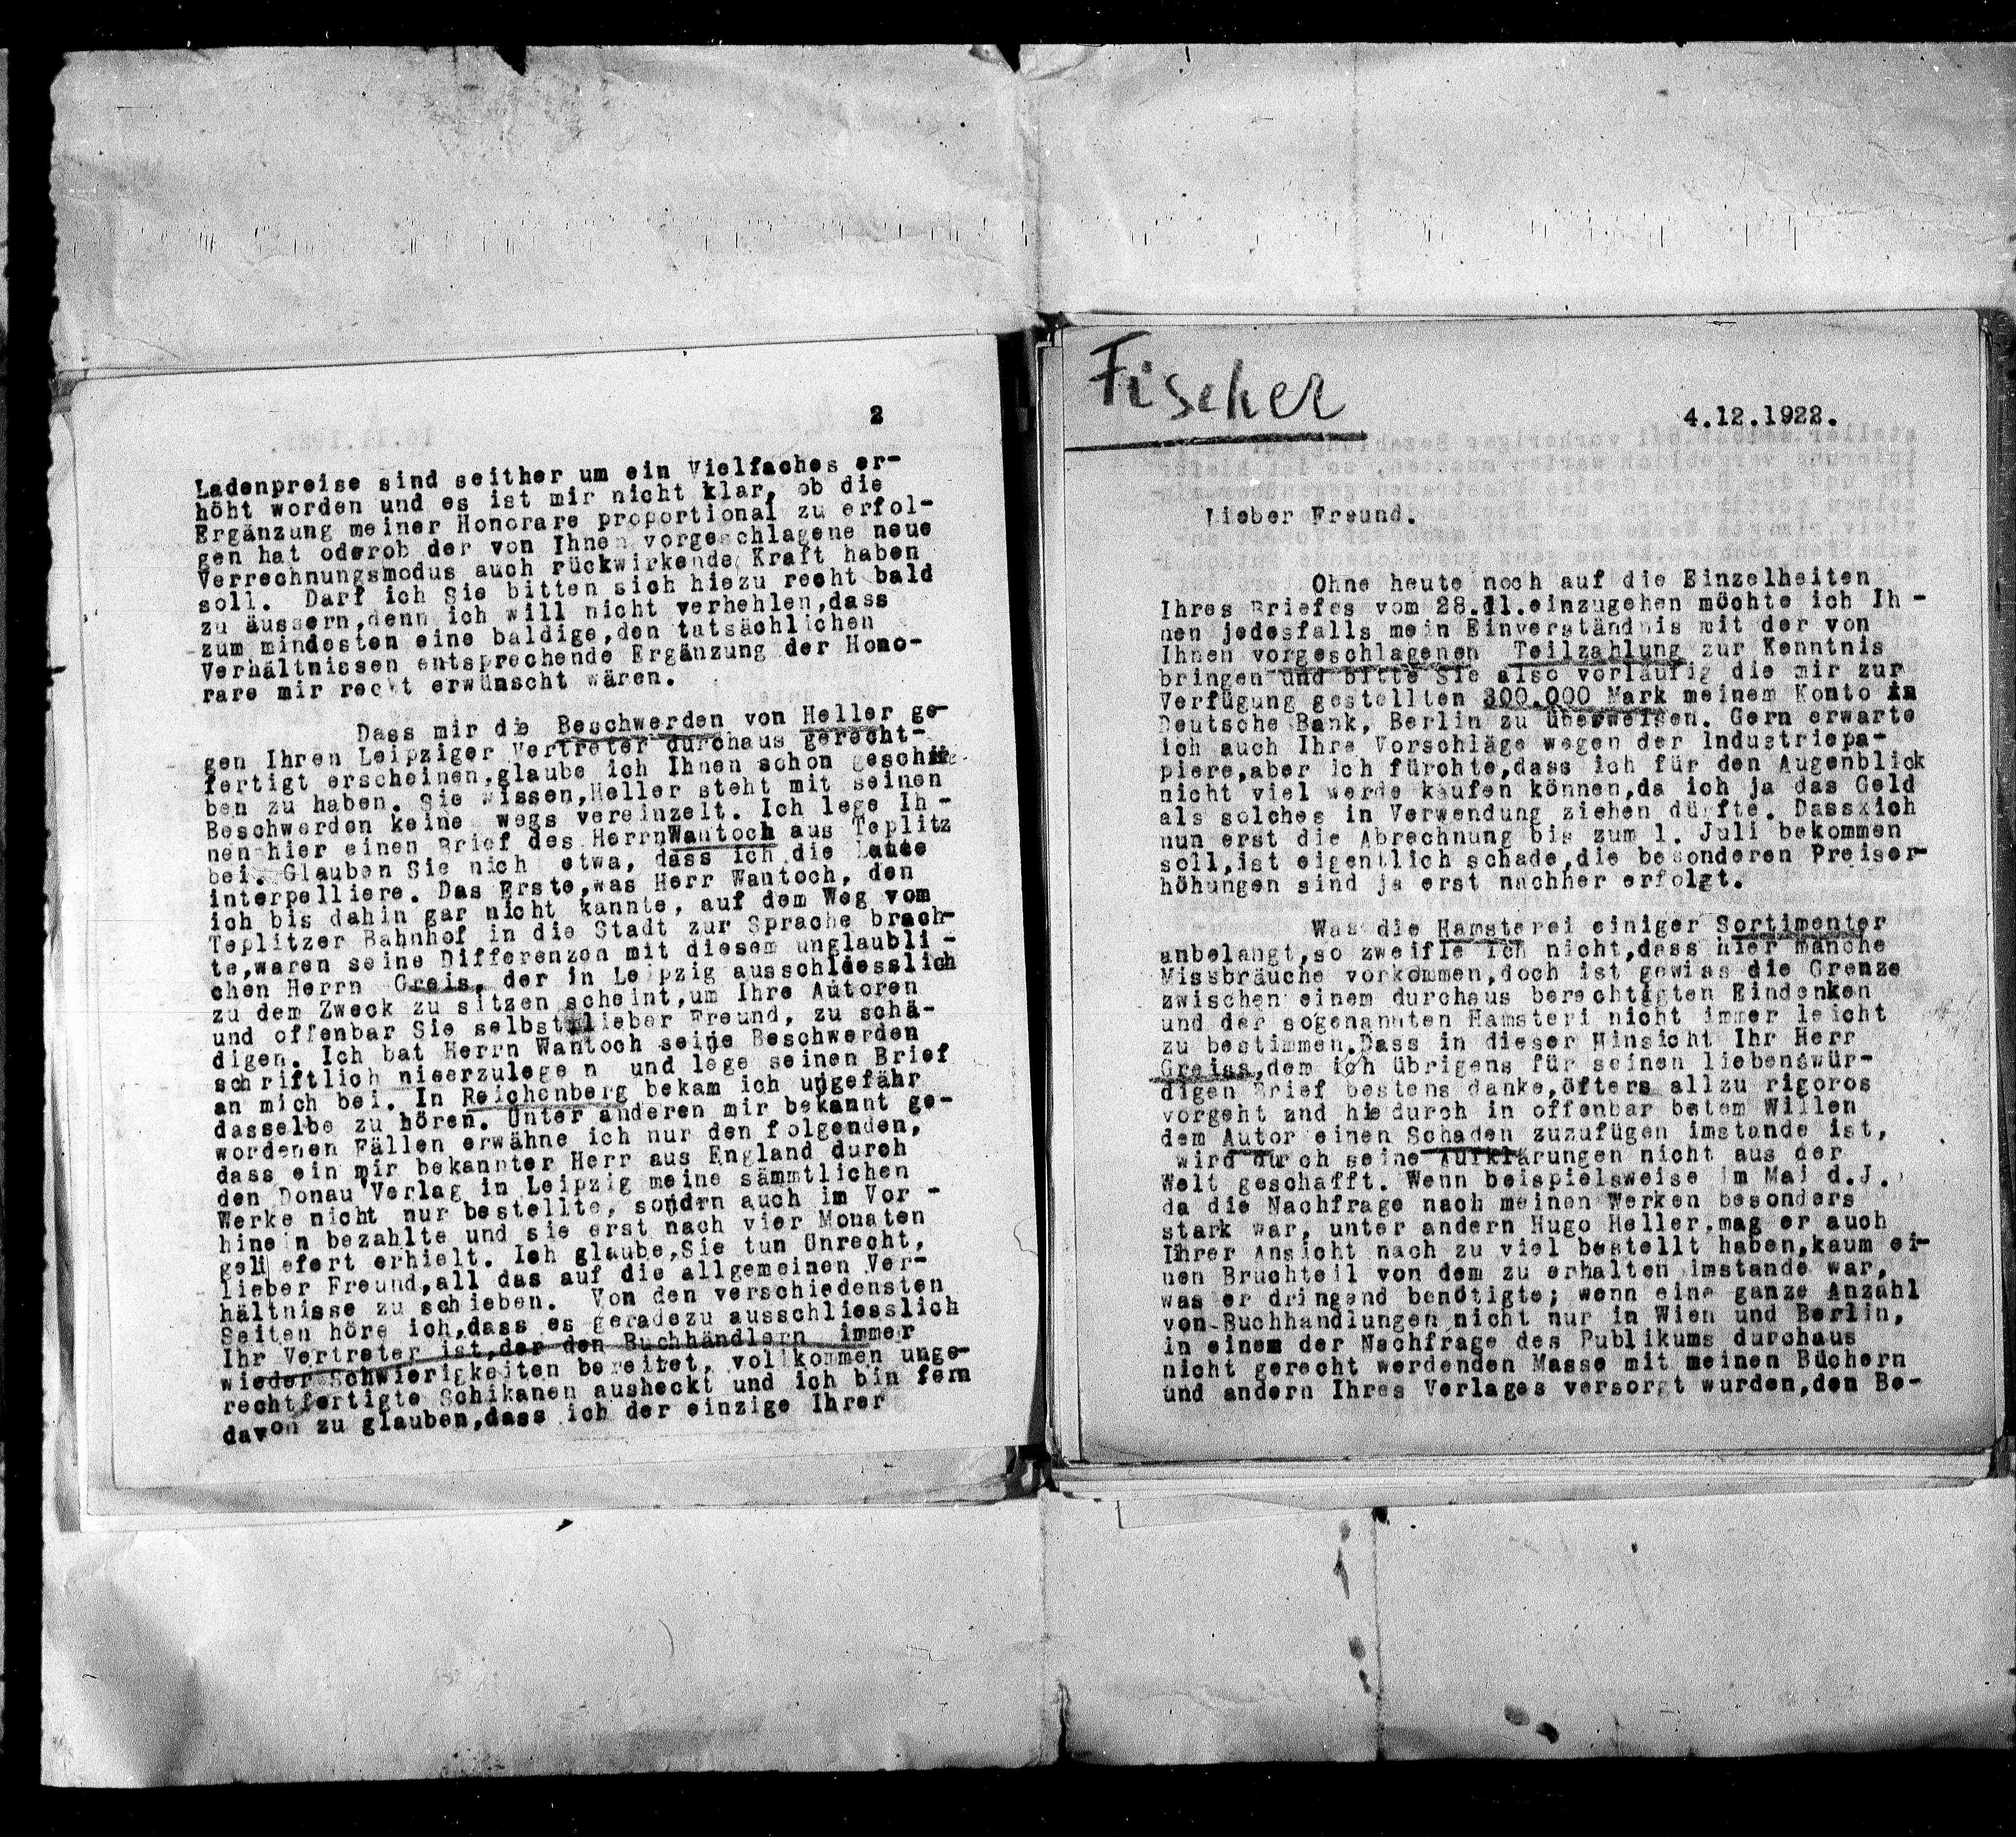 2
Ladenpreise sind seither um ein Vielfaches er-
höht worden und es ist mir nicht klar, ob die
Ergänzung meiner Honorare proportional zu erfol-
gen hat oderob der von Ihnen vorgeschlagene neue
Verrechnungsmodus auch rückwirkende Kraft haben
soll. Darf ich Sie bitten sich hiezu recht bald
zu äussern,denn ich will nicht verhehlen,dass
zum mindesten eine baldige,den tatsächlichen
Verhältnissen entsprechende Ergänzung der Hono-
rare mir recht erwünscht wären.
Dass mir die Beschwerden von Heller ge-
gen Ihren Leipziger Vertreter durchaus gerecht-
fertigt erscheinen,glaube ich Ihnen schon geschrie-
ben zu haben. Sie wissen,Heller steht mit seinen
Beschwerden keines wegs vereinzelt. Ich lege Ih-
nen hier einen Brief des HerrnWantoch aus Teplitz
bei. Glauben Sie nich etwa, dass ich die Leute
interpelliere. Das Erste,was Herr Wantoch, den
ich bis dahin gar nicht kannte, auf dem Weg vom
Teplitzer Bahnhof in die Stadt zur Sprache brach-
te,waren seine Differenzen mit diesem unglaubli-
chen Herrn Greis, der in Leipzig ausschliesslich
zu dem Zweck zu sitzen scheint,um Ihre Autoren
und offenbar Sie selbst,lieber Freund, zu schä-
digen. Ich bat Herrn Wantoch seine Beschwerden
schriftlich nieerzulege n und lege seinen Brief
an mich bei. In Reichenberg bekam ich ungefähr
dasselbe zu hören. Unter anderen mir bekannt ge-
wordenen Fällen erwähne ich nur den folgenden,
dass ein mir bekannter Herr aus England durch
den Donau Verlag in Leipzig meine sämmtlichen
Werke nicht nur bestellte, sondrn auch im Vor -
hinein bezahlte und sie erst nach vier Monaten
geliefert erhielt. Ich glaube,Sie tun Unrecht,
lieber Freund,all das auf die allgemeinen Ver-
hältnisse zu schieben. Von den verschiedensten
Seiten höre ich,dass es geradezu ausschliesslich
Ihr Vertreter ist,der den Buchhändlern immer
wieder Schwierigkeiten bereitet, vollkommen unge-
rechtfertigte Schikanen ausheckt und ich bin fern
davon zu glauben,dass ich der einzige Ihrer
Fischer
4.12.1922.
Lieber Freund.
Ohne heute noch auf die Einzelheiten
Ihres Briefes vom 28.11.einzugehen möchte ich Ih -
nen jedesfalls mein Einverständnis mit der von
Ihnen vorgeschlagenen Teilzahlung zur Kenntnis
bringen und bitte Sie also vorläufig die mir zur
Verfügung gestellten 300.000 Mark meinem Konto in
Deutsche Bank, Berlin zu überweisen. Gern erwarte
ich auch Ihre Vorschläge wegen der Industriepa-
piere,aber ich fürchte,dass ich für den Augenblick
nicht viel werde kaufen können,da ich ja das Geld
als solches in Verwendung ziehen dürfte. Dassxich
nun erst die Abrechnung bis zum 1. Juli bekommen
soll,ist eigentlich schade,die besonderen Preiser-
höhungen sind ja erst nachher erfolgt.
Was die Hamsterei einiger Sortimenter
anbelangt,so zweifle ich nicht,dass hier manche
Missbräuche vorkommen,doch ist gewiss die Grenze
zwischen einem durchaus berechtigten Eindenken
und der sogenannten Hamsteri nicht immer leicht
zu bestimmen.Dass in dieser Hinsicht Ihr Herr
Greiss,dem ich übrigens für seinen liebenswür-
digen Brief bestens danke,öfters allzu rigoros
vorgeht und hiedurch in offenbar betem Willen
dem Autor einen Schaden zuzufügen imstande ist,
wird durch seine Aufklärungen nicht aus der
Welt geschafft. Wenn beispielsweise im Mai d.J.
da die Nachfrage nach meinen Werken besonders
stark war, unter andern Hugo Heller,mag er auch
Ihrer Ansicht nach zu viel bestellt haben,kaum ei-
nen Bruchteil von dem zu erhalten imstande war,
was er dringend benötigte; wenn eine ganze Anzahl
von Buchhandlungen nicht nur in Wien und Berlin,
in einem der Nachfrage des Publikums durchaus
nicht gerecht werdenden Masse mit meinen Büchern
und andern Ihres Verlages versorgt wurden,den Be-